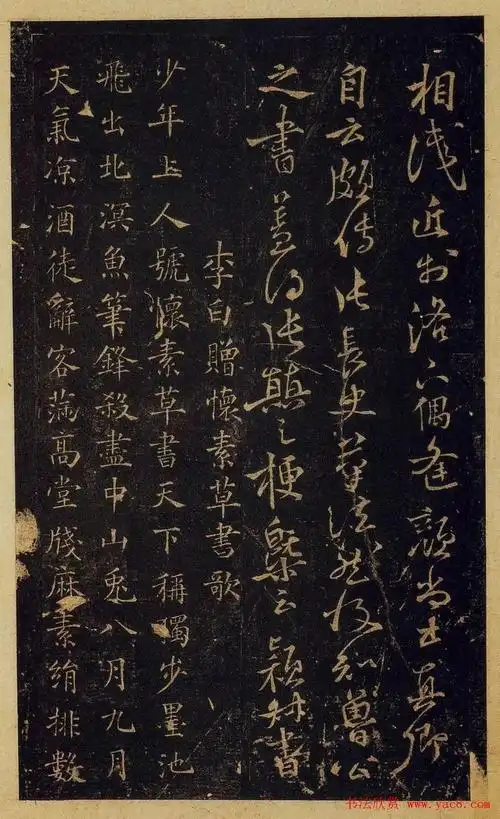 相淺近於洛下偶逢顏尚書真卿
自云頗傳張長史筆法然後知魯公
之書蓋得張顛之梗槩云穎叔書
李白贈懷素草書歌
少年上人號懷素草書天下稱獨步墨池
飛出北溟魚筆鋒殺盡中山兎八月九月
天氣凉酒徒辭客滿高堂牋麻素絹排數
书法欣赏 www.yac8.com